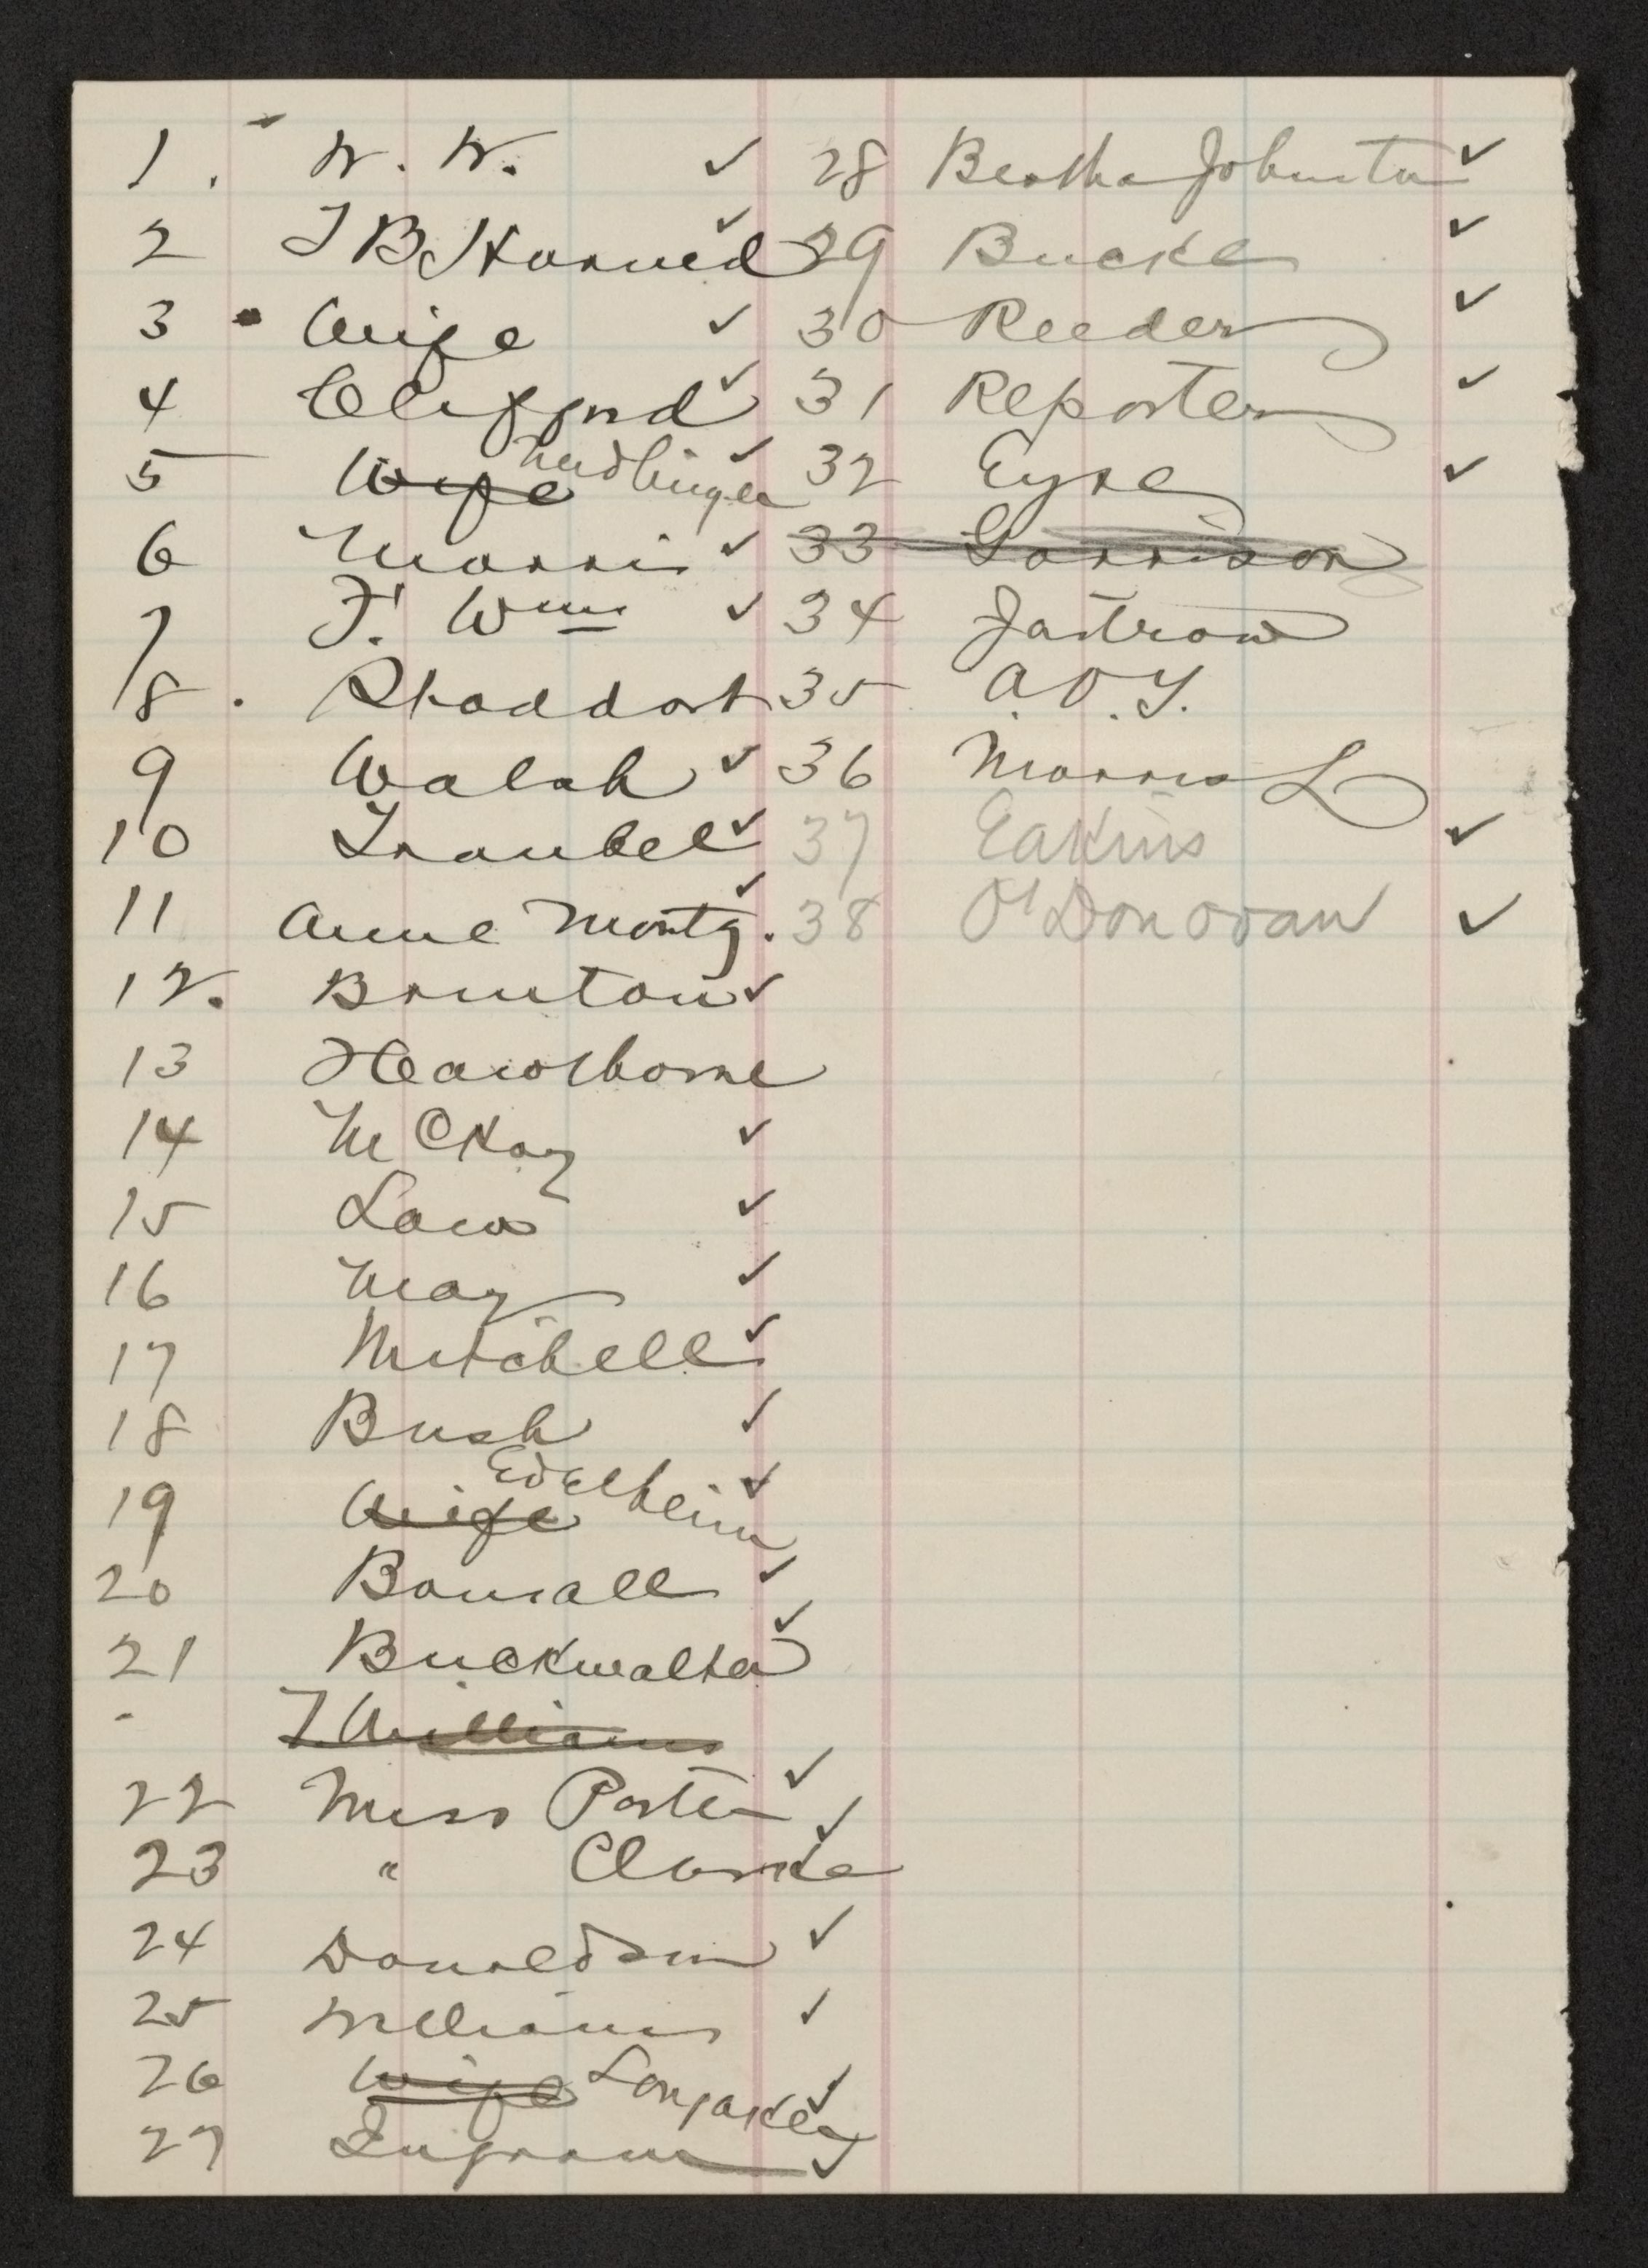 1. W. W. ✓
2 T B Harned ✓
3 Wife ✓
4 Clifford ✓
5 Wife Neidlinger ✓
6 Morris ✓
7 F. Wms ✓
8. Stoddart
9 Walsh ✓
10 Traubel ✓
11 Anne Montg. ✓
12. Brinton ✓
13 Hawthorne
14 McKay ✓
15 Law ✓
16 May ✓
17 Mitchell ✓
18 Bush ✓
19 Wife Edelheim ✓
20 Bonsall ✓
21 Buckwalter ✓
- T Williams
22 Miss Porter ✓
23 " Clarke ✓
24 Donaldson ✓
25 Williams ✓
26 Wife Longaker ✓
27 Ingram ✓
28 Bertha Johnston ✓
29 Bucke ✓
30 Reeder ✓
31 Reporter ✓
32 Eyre ✓
33 Garrison
34 Jastrow
35
36 Morris L
37 Eakins ✓
38 O'Donovan ✓